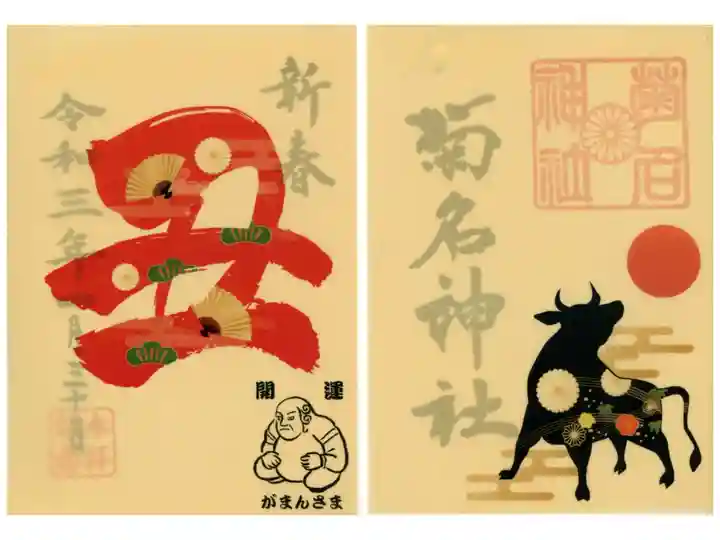 新春
丑
令和三年一月三十日
開運
がまんさま
菊名神社
菊名
神社